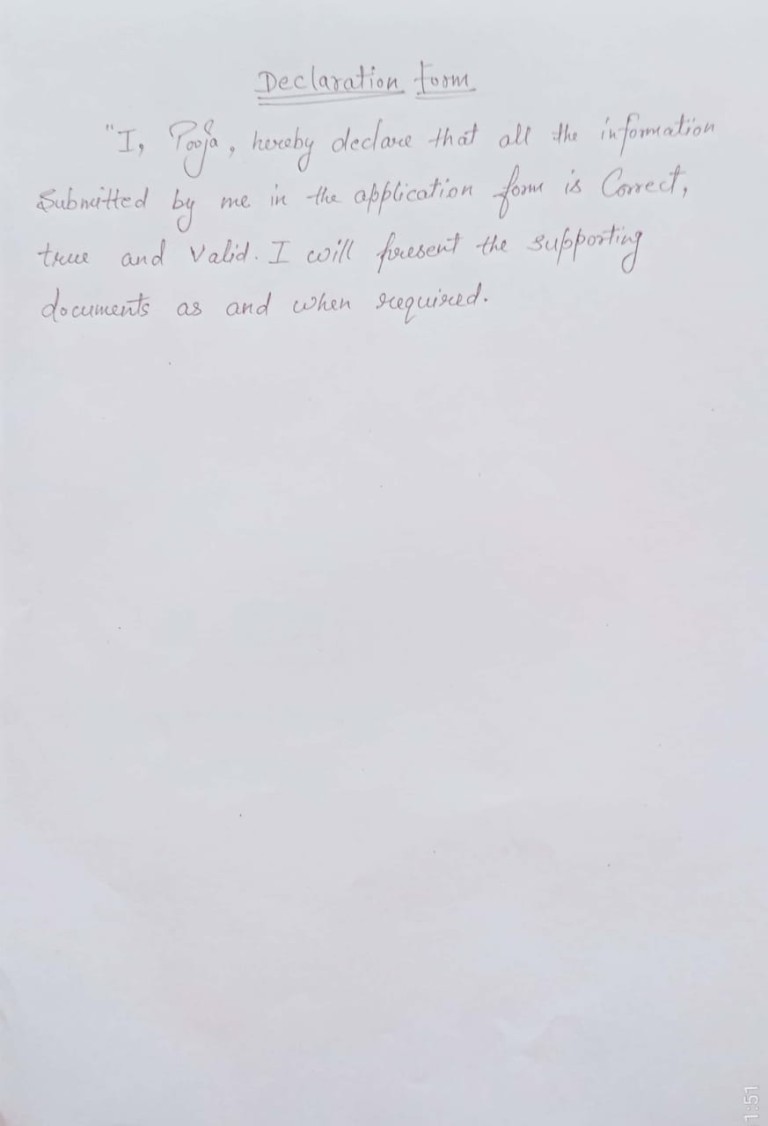 Declaration form
"I, Pooja, hereby declare that all the information
Submitted by me in the application form is Correct,
true and Valid. I will present the supporting
documents as and when required.
1:51